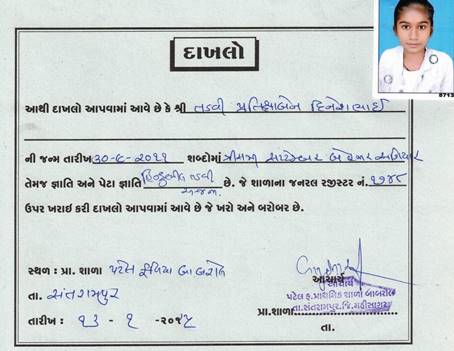 દાખલો
આથી દાખલો આપવામાં આવે છે કે શ્રી તડવી પ્રતિક્ષાબેન દિનેશભાઈ
ની જન્મ તારીખ ૩૦-૯-૨૦૧૧ શબ્દોમાં ત્રીસમી સપ્ટેમ્બર બે હજાર અગિયાર
તેમજ જ્ઞાતિ અને પેટા જ્ઞાતિ હિન્દુ તડવી છે. જે શાળાના જનરલ રજીસ્ટર નં.
ઉપર ખરાઇ કરી દાખલો આપવામાં આવે છે જે ખરો અને બરોબર છે.
સ્થળ : પ્રા. શાળા પટેલ ફળિયા બાબરોલ
આચાર્ય
આચાર્ય
પટેલ ફ. પ્રાથમિક શાળા બાબરોલ
તા. સંતરામપુર
પ્રા.શાળા તા.સંતરામપુર,જિ.મહીસાગર
તારીખ : ૧૩ - ૧ - ૨૦
તા.
8713